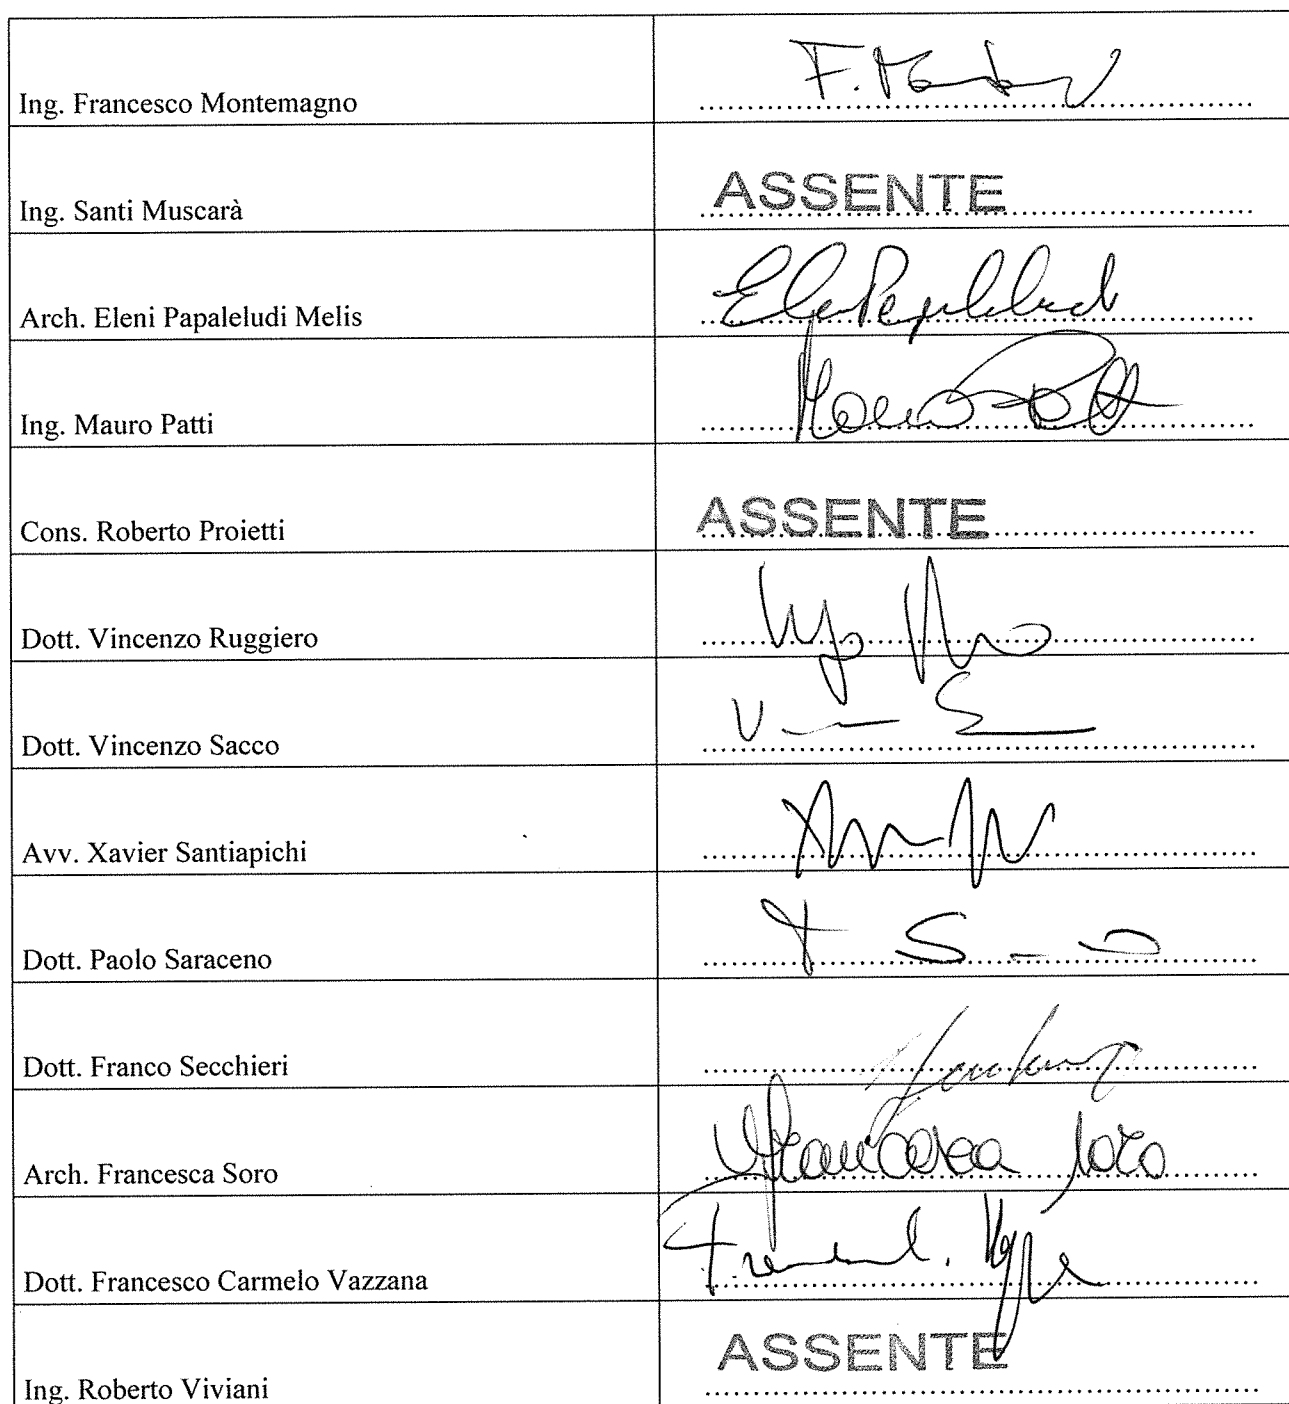 Ing. Francesco Montemagno
Ing. Santi Muscarà ASSENTE
Arch. Eleni Papaleludi Melis
Ing. Mauro Patti
Cons. Roberto Proietti ASSENTE
Dott. Vincenzo Ruggiero
Dott. Vincenzo Sacco
Avv. Xavier Santiapichi
Dott. Paolo Saraceno
Dott. Franco Secchieri
Arch. Francesca Soro Francesca Soro
Dott. Francesco Carmelo Vazzana
Ing. Roberto Viviani ASSENTE